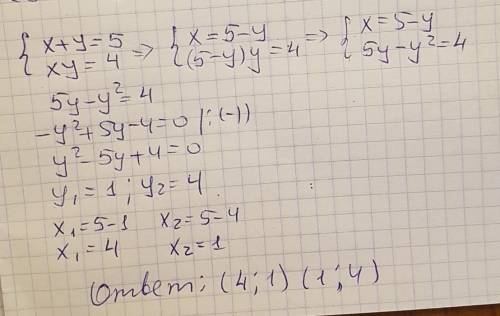 { x+y=5 => { x=5-y => { x=5-y
xy=4 (5-y)y=4 5y-y²=4
5y-y²=4
-y²+5y-4=0 |:(-)
y²-5y+4=0
y₁=1; y₂=4
x₁=5-1 x₂=5-4
x₁=4 x₂=1
Ответ: (4;1) (1;4)